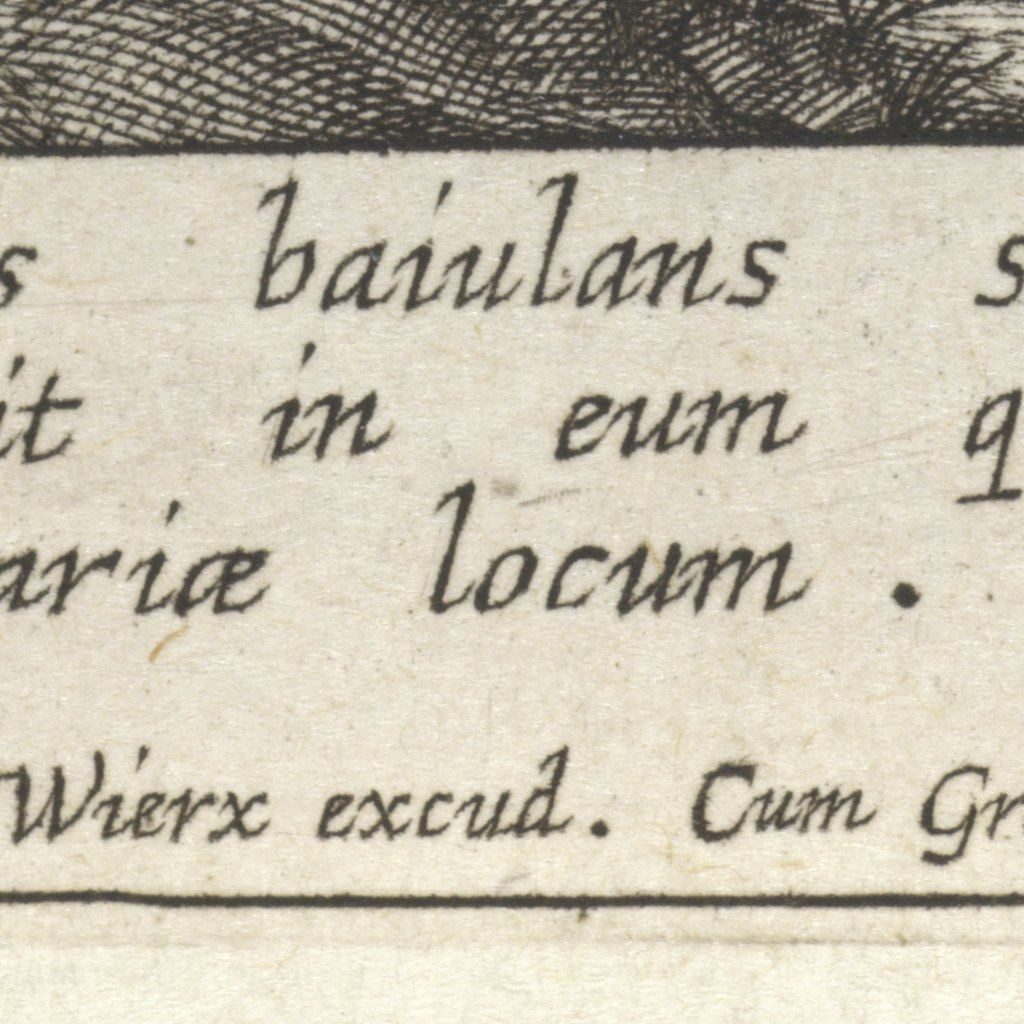 s baiulans s
it in eum q
ariæ locum .
Wierx excud. Cum Gr